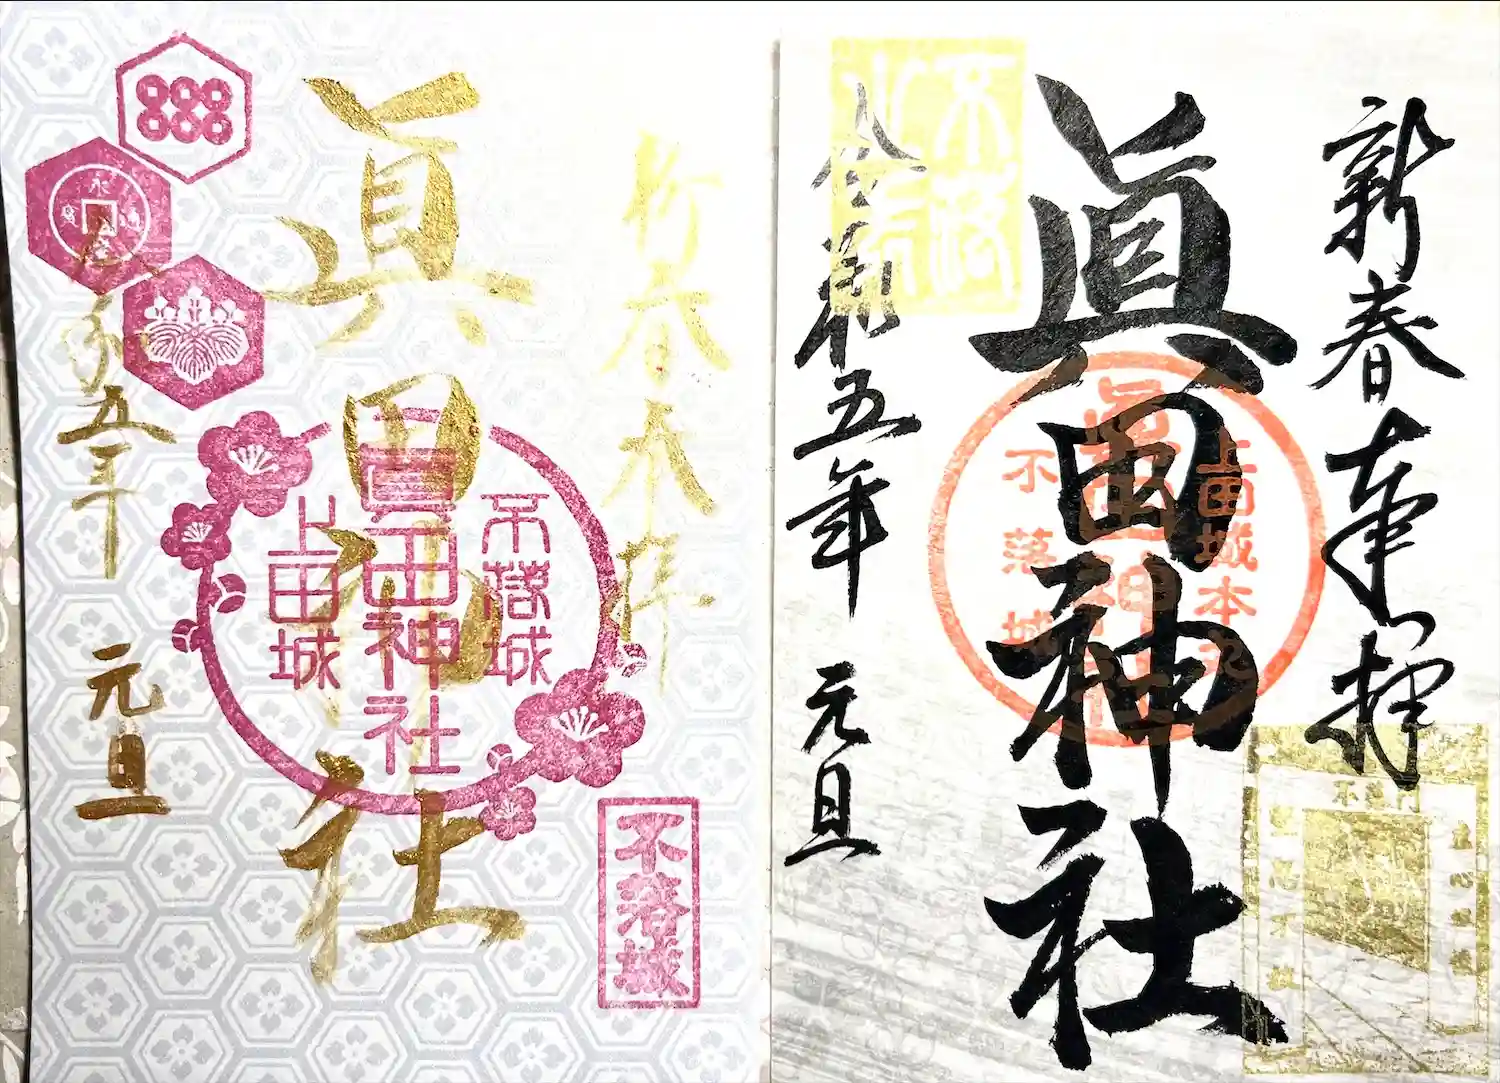 新春奉拝
不落城
上田城本丸
眞田神社
不落城
令和五年 元旦
不落
新春奉拝
不落城
眞田神社
眞田神社
上田城
令和五年 元旦
永
通
寳
不落城